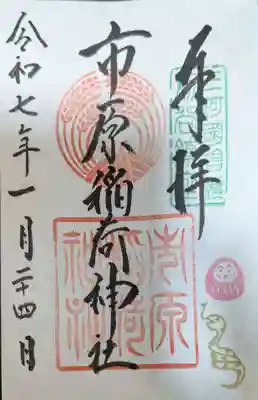 奉拝
市原稲荷神社
令和七年一月二十四日
市原稲荷神社